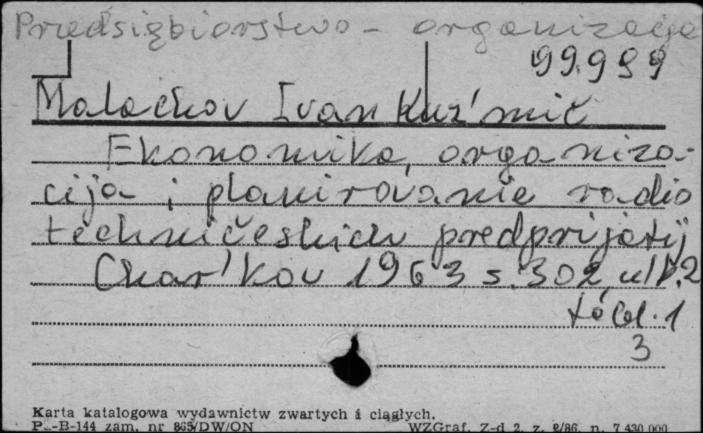 Przedsiębiorstwo - organizacja
99.989
Malachov Ivan Kuz'mič
Ekonomika, organiza-
cija i planirovanie radio
techničeskich predprijatij
Char'kov 1963 s. 302,
3
Karta katalogowa wydawnictw zwartych i ciągłych.
zam. nr 865/DW/ON WZGraf. Z-d 2. z. 2/86. n. 7 430 000